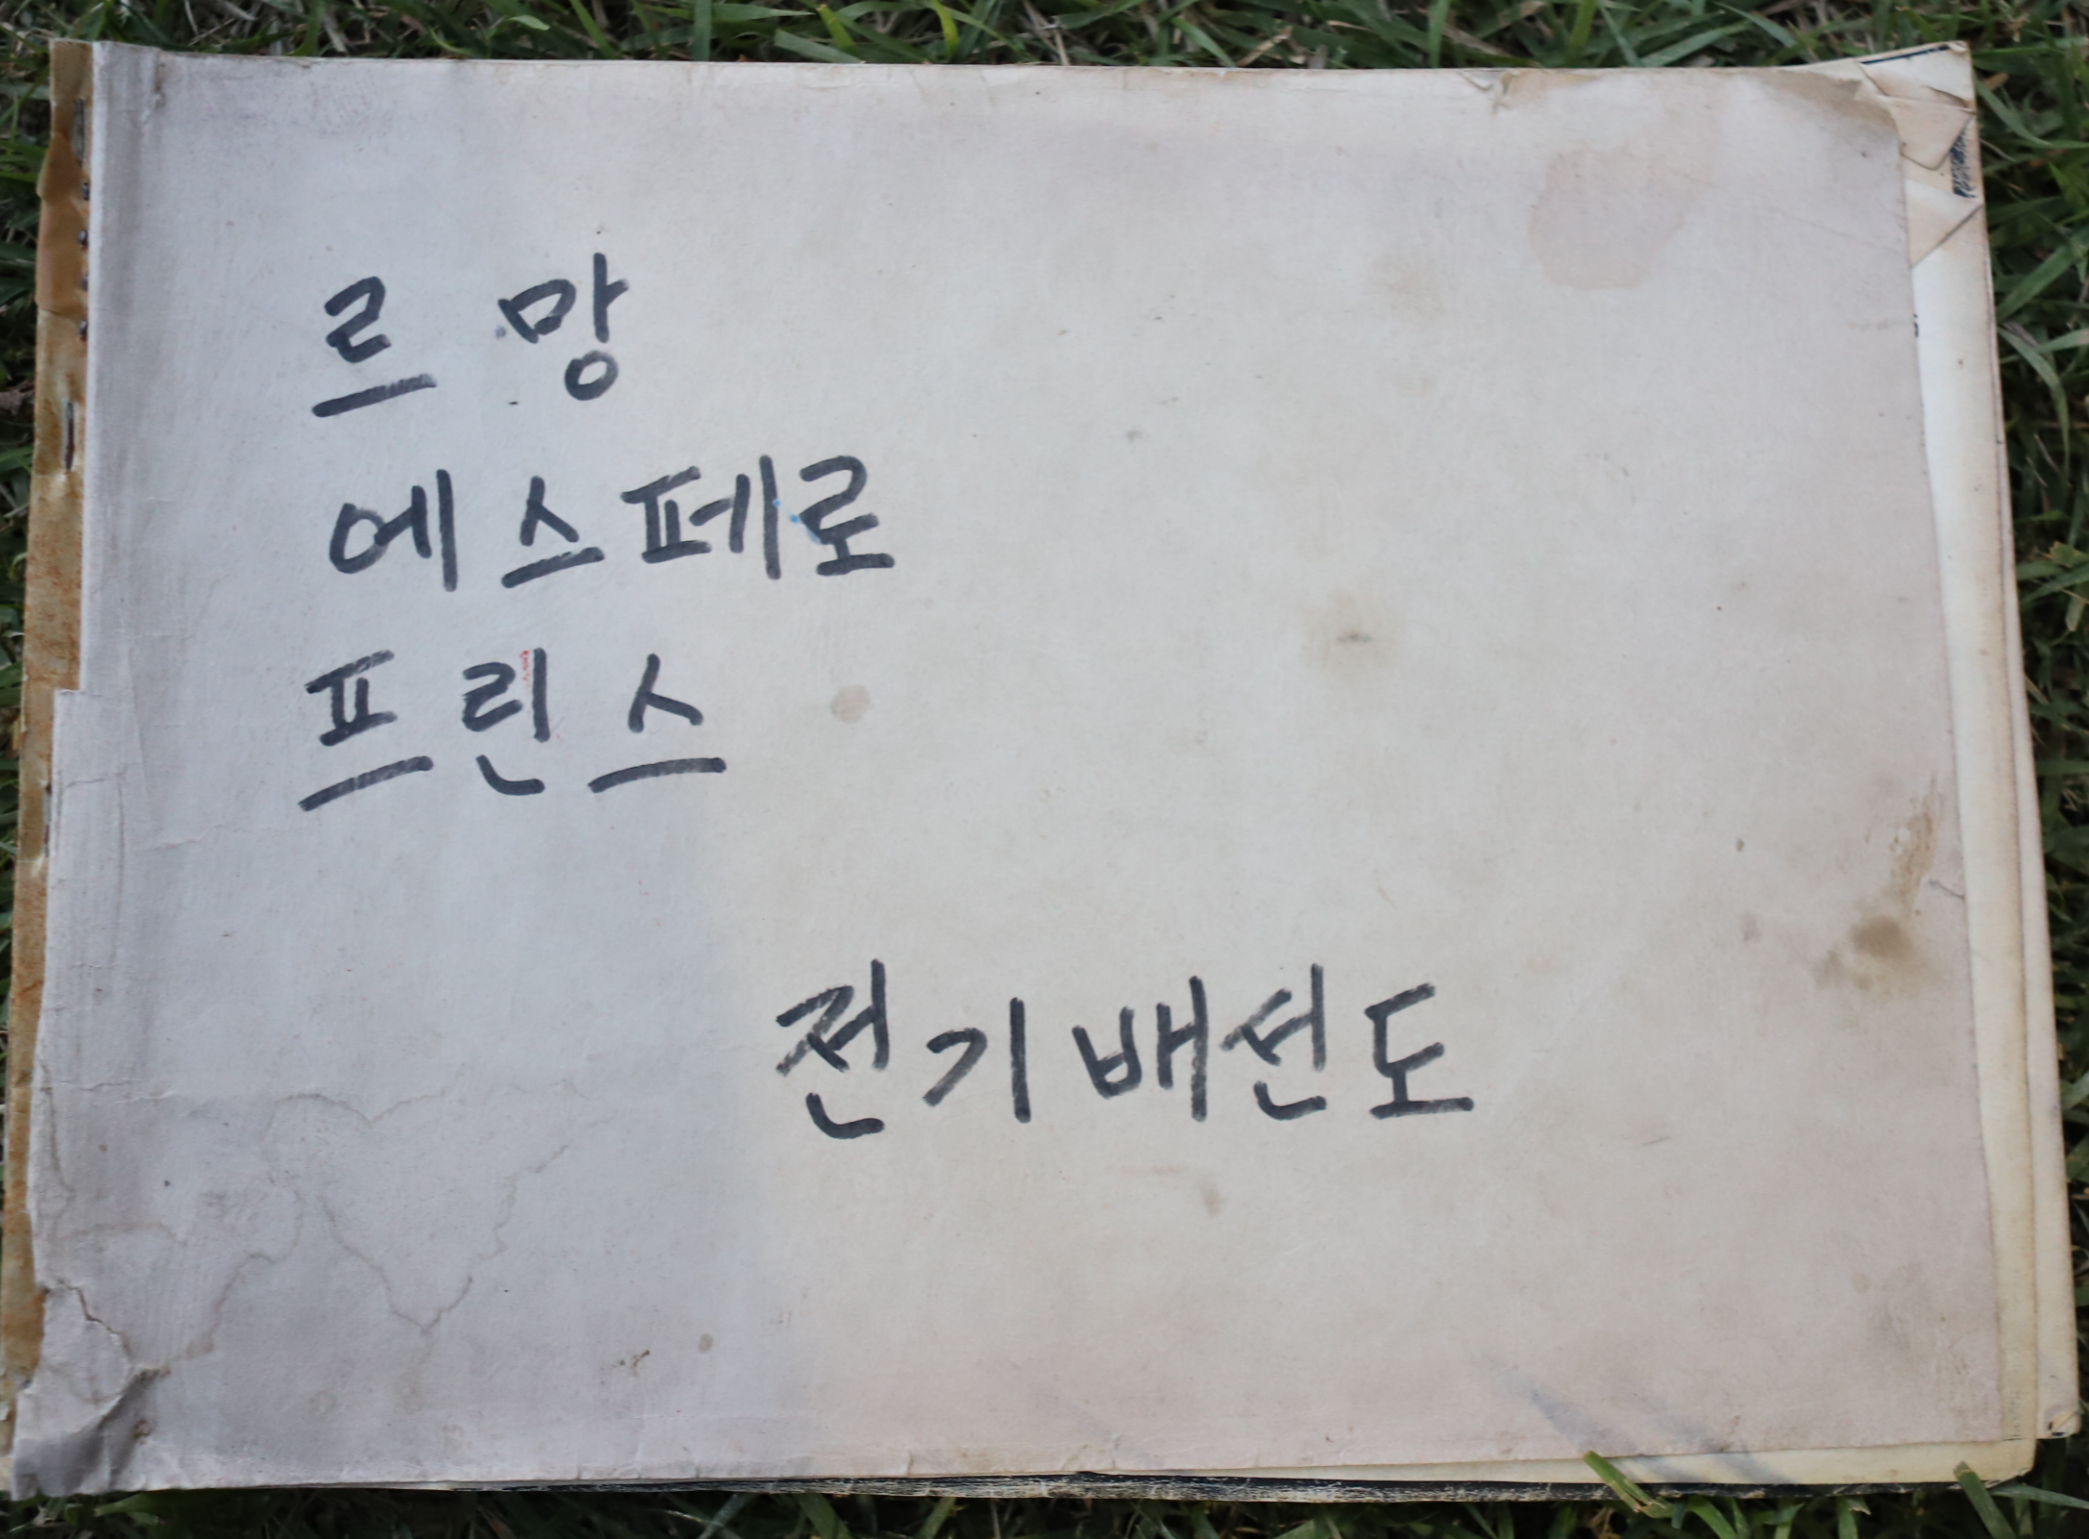 르망
에스페로
프린스
전기배선도